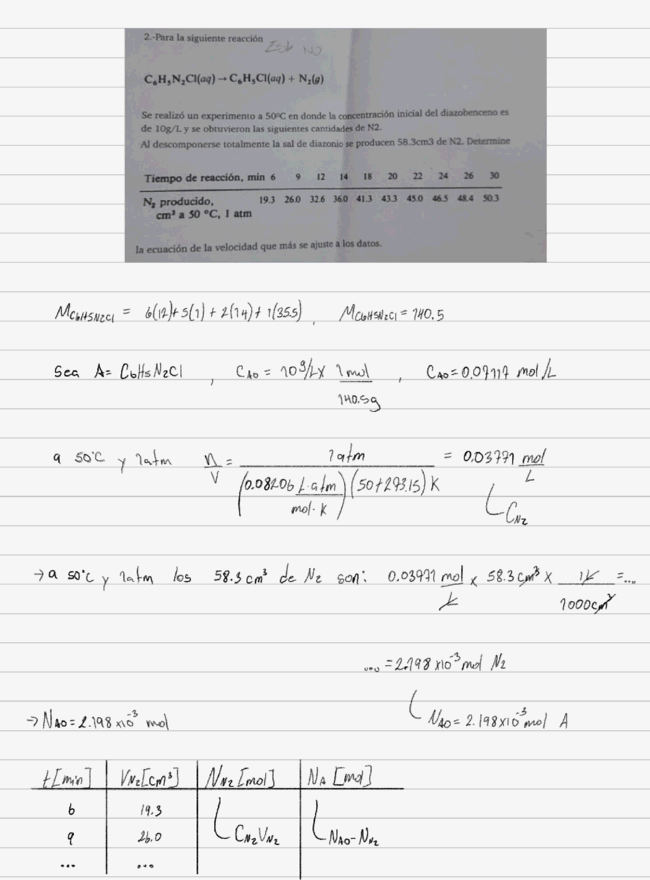 2.-Para la siguiente reacción
C₆H₅N₂Cl(aq) → C₆H₅Cl(aq) + N₂(g)
Se realizó un experimento a 50ºC en donde la concentración inicial del diazobenceno es
de 10g/L y se obtuvieron las siguientes cantidades de N2.
Al descomponerse totalmente la sal de diazonio se producen 58.3cm3 de N2. Determine
Tiempo de reacción, min 6 9 12 14 18 20 22 24 26 30
N₂ producido, 19.3 26.0 32.6 36.0 41.3 43.3 45.0 46.5 48.4 50.3
cm³ a 50 °C, 1 atm
la ecuación de la velocidad que más se ajuste a los datos.
M_C6H5N2Cl = 6(12)+5(1)+2(14)+1(35.5) , M_C6H5N2Cl = 140.5
Sea A= C6H5N2Cl , C_A0 = 10 g/L x 1mol/140.5g , C_A0 = 0.07117 mol/L
a 50°C y 1atm n/V = 1atm/(0.08206 L·atm/mol·K)(50+273.15)K = 0.03771 mol/L
C_N2
→ a 50°C y 1atm los 58.3 cm³ de N2 son: 0.03771 mol/L x 58.3 cm³ x 1L/1000cm³ =...
... = 2.198 x10⁻³ mol N2
→ N_A0 = 2.198 x10⁻³ mol
N_A0 = 2.198x10⁻³ mol A
t[min] V_N2[cm³] N_N2 [mol] N_A [mol]
6 19.3
9 26.0 C_N2 V_N2 N_A0 - N_N2
... ...